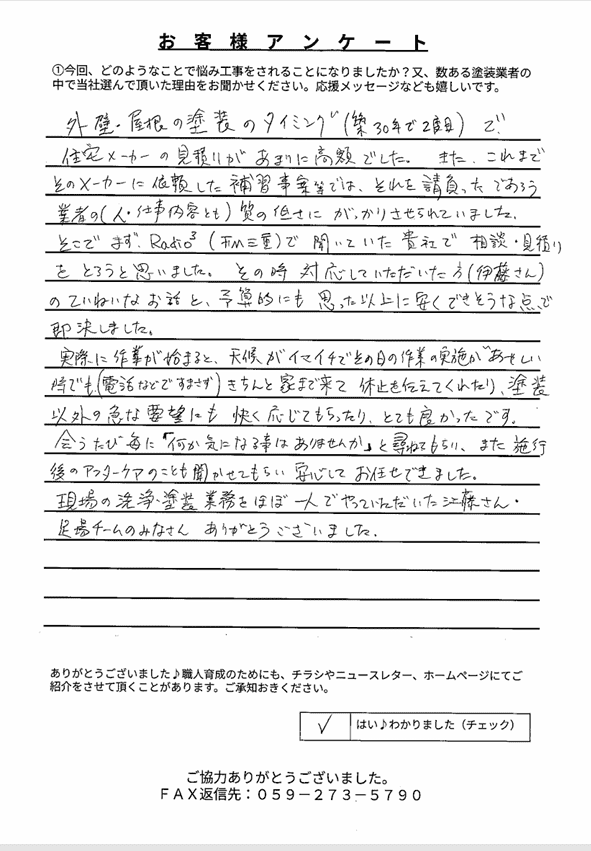 お客様アンケート
①今回、どのようなことで悩み工事をされることになりましたか？又、数ある塗装業者の
中で当社選んで頂いた理由をお聞かせください。応援メッセージなども嬉しいです。
外壁・屋根の塗装のタイミング(築30年で2度目)で
住宅メーカーの見積りがあまりに高額でした。また、これまで
そのメーカーに依頼した補習事案等では、それを請負ったであろう
業者の(人・仕事内容とも)質の低さにがっかりさせられていました。
そこでまず、Radio³(FM三重)で聞いていた貴社で相談・見積り
をとろうと思いました。その時対応していただいた方(伊藤さん)
のていねいなお話と、予算的にも思った以上に安くできそうな点で
即決しました。
実際に作業が始まると、天候がイマイチでその日の作業の実施があやしい
時でも、(電話などですまさず)きちんと家まで来て休止を伝えてくれたり、塗装
以外の急な要望にも快く応じてもらったり、とても良かったです。
会うたび毎に「何か気になる事はありませんか」と尋ねてもらい、また施行
後のアフターケアのことも聞かせてもらい安心してお任せできました。
現場の洗浄・塗装業務をほぼ一人でやっていただいた江藤さん・
足場チームのみなさんありがとうございました。
ありがとうございました♪職人育成のためにも、チラシやニュースレター、ホームページにてご
紹介をさせて頂くことがあります。ご承知おきください。
✓ はい♪わかりました（チェック）
ご協力ありがとうございました。
ＦＡＸ返信先：０５９－２７３－５７９０